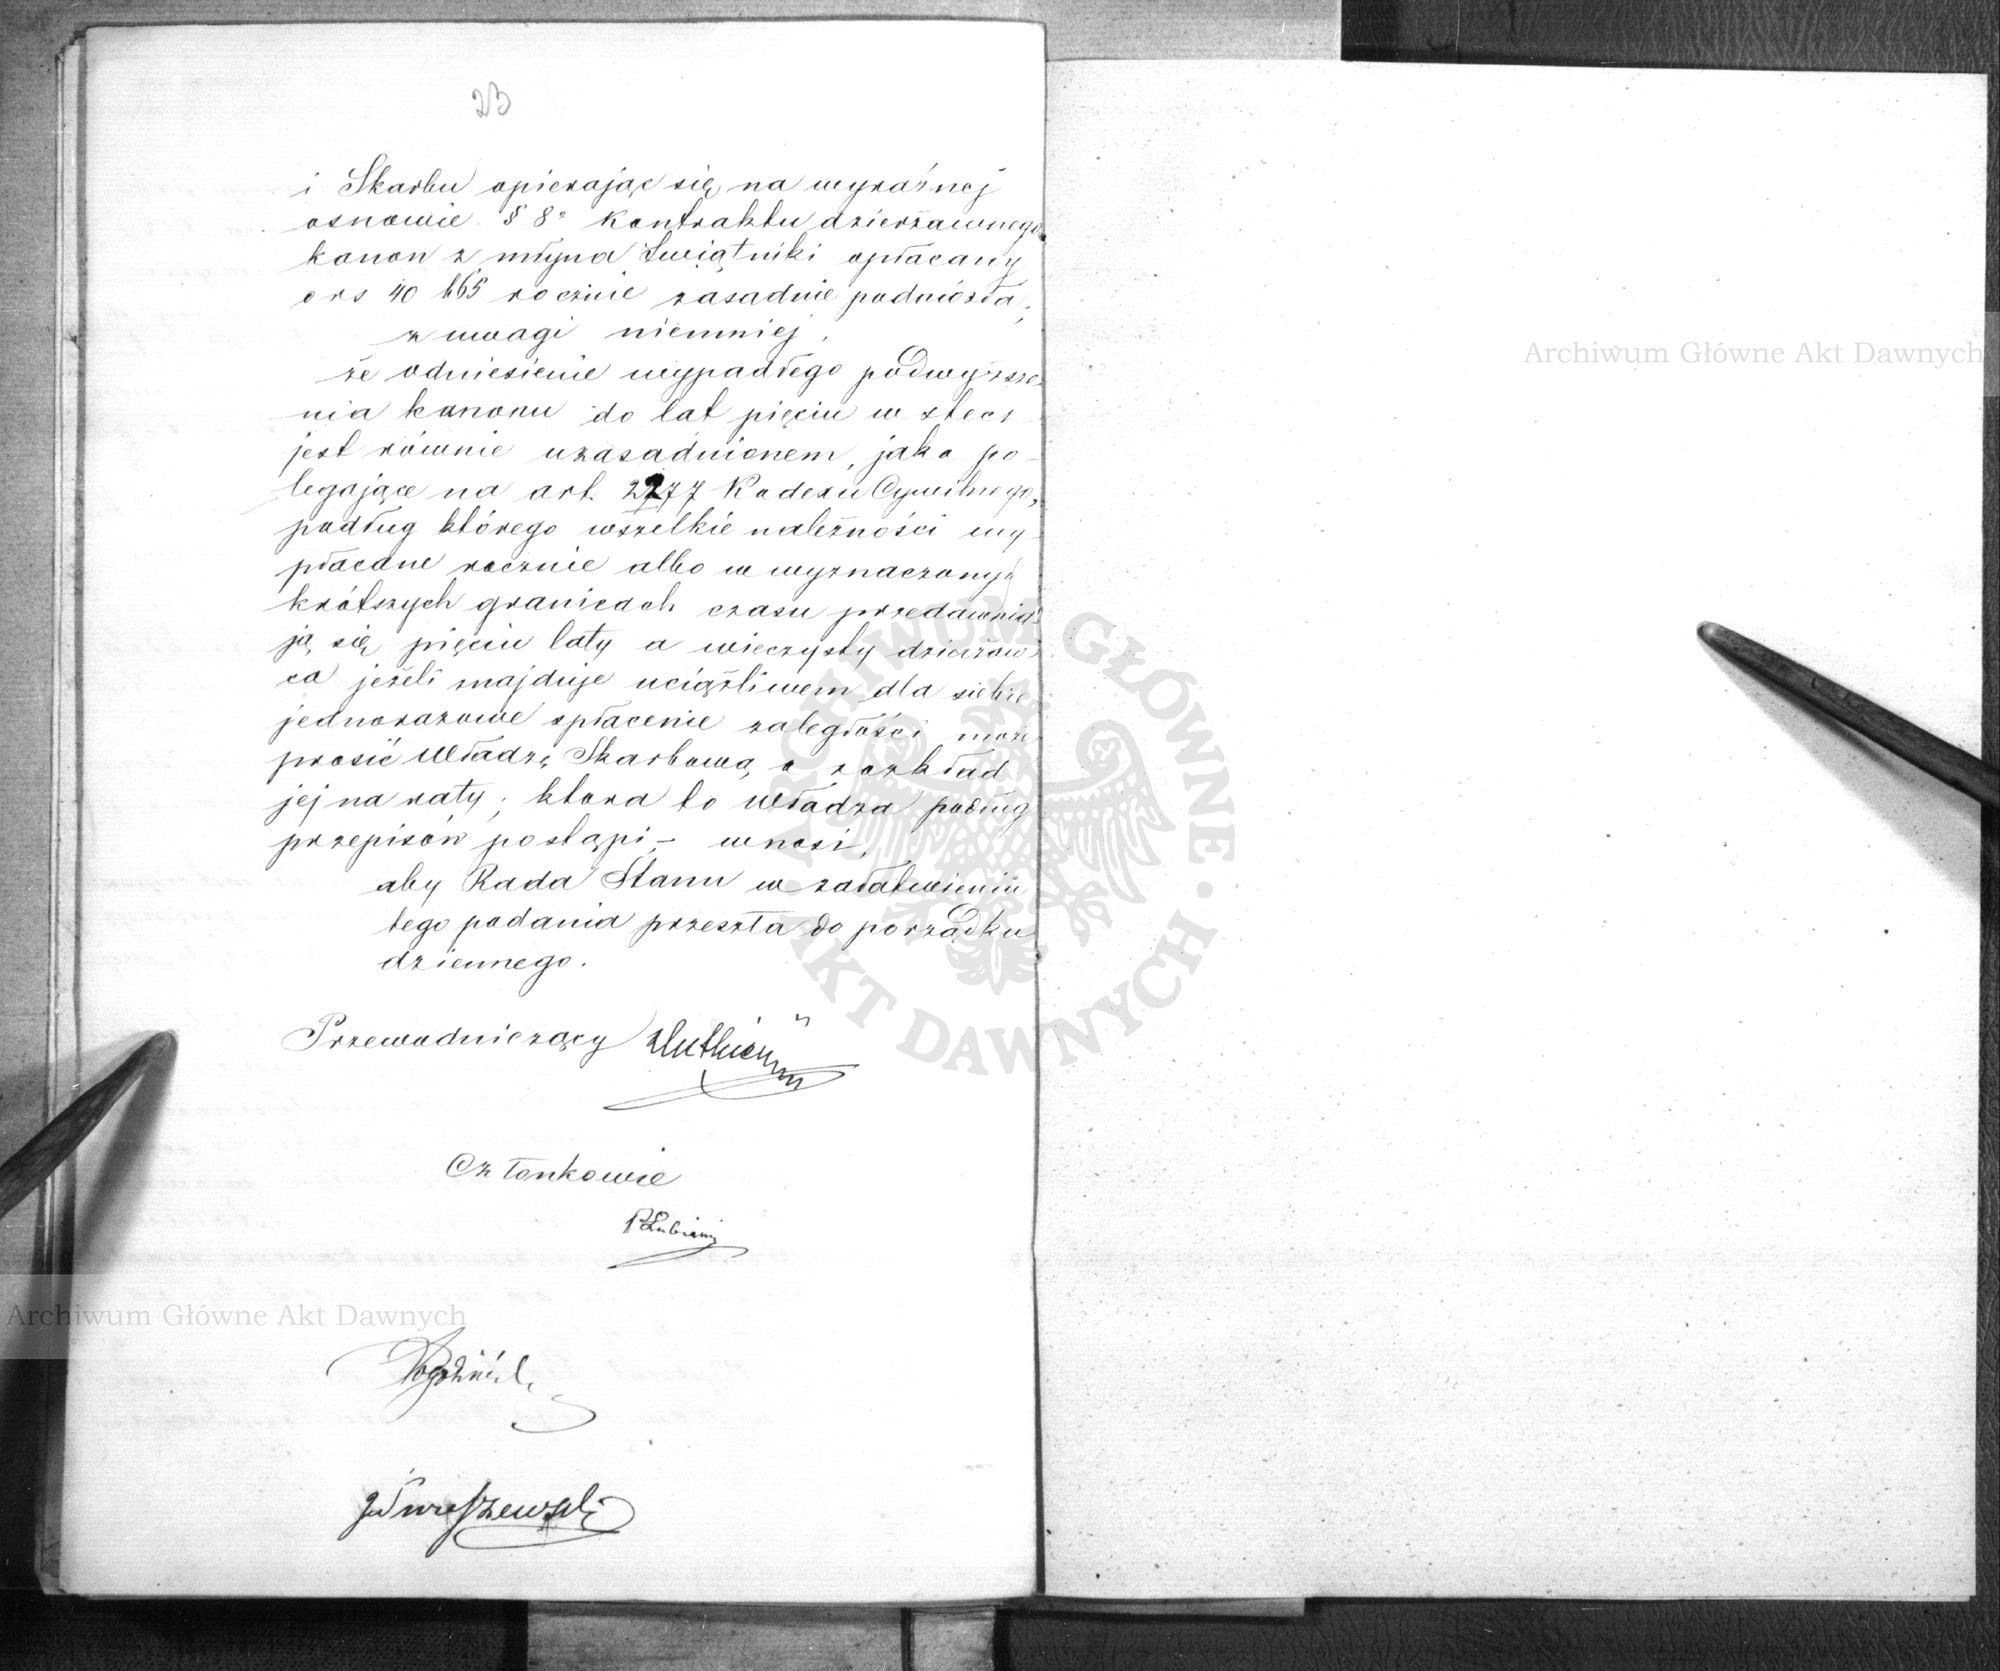 23
i Skarbu opierając się na wyraźnej
osnowie § 8º Kontraktu dzierżawnego
kanon z młyna Świątniki opłacany
o rs 40 k65 rocznie zasadnie podniosła;
z uwagi niemniej,
że odniesienie wypadłego podwyższe-
nia kanonu do lat pięciu w stecz
jest równie uzasadnionem, jako po-
legające na art. 2277 Kodexu Cywilnego,
podług którego wszelkie należności wy-
płacane rocznie albo w wyznaczonych
krótszych granicach czasu przedawnia-
ją się pięciu laty a wieczysty dzierżaw-
ca jeżeli znajduje uciążliwem dla siebie
jednorazowe spłacenie zaległości może
prosić Władzę Skarbową o rozkład
jej na raty; ktora to władza podług
przepisów postąpi – wnosi,
aby Rada Stanu w załatwieniu
tego podania przeszła do porządku
dziennego.
Przewodniczący
Członkowie
RŁubieński
Archiwum Główne Akt Dawnych
Archiwum Główne Akt Dawnych
ARCHIWUM GŁÓWNE · AKT DAWNYCH ·